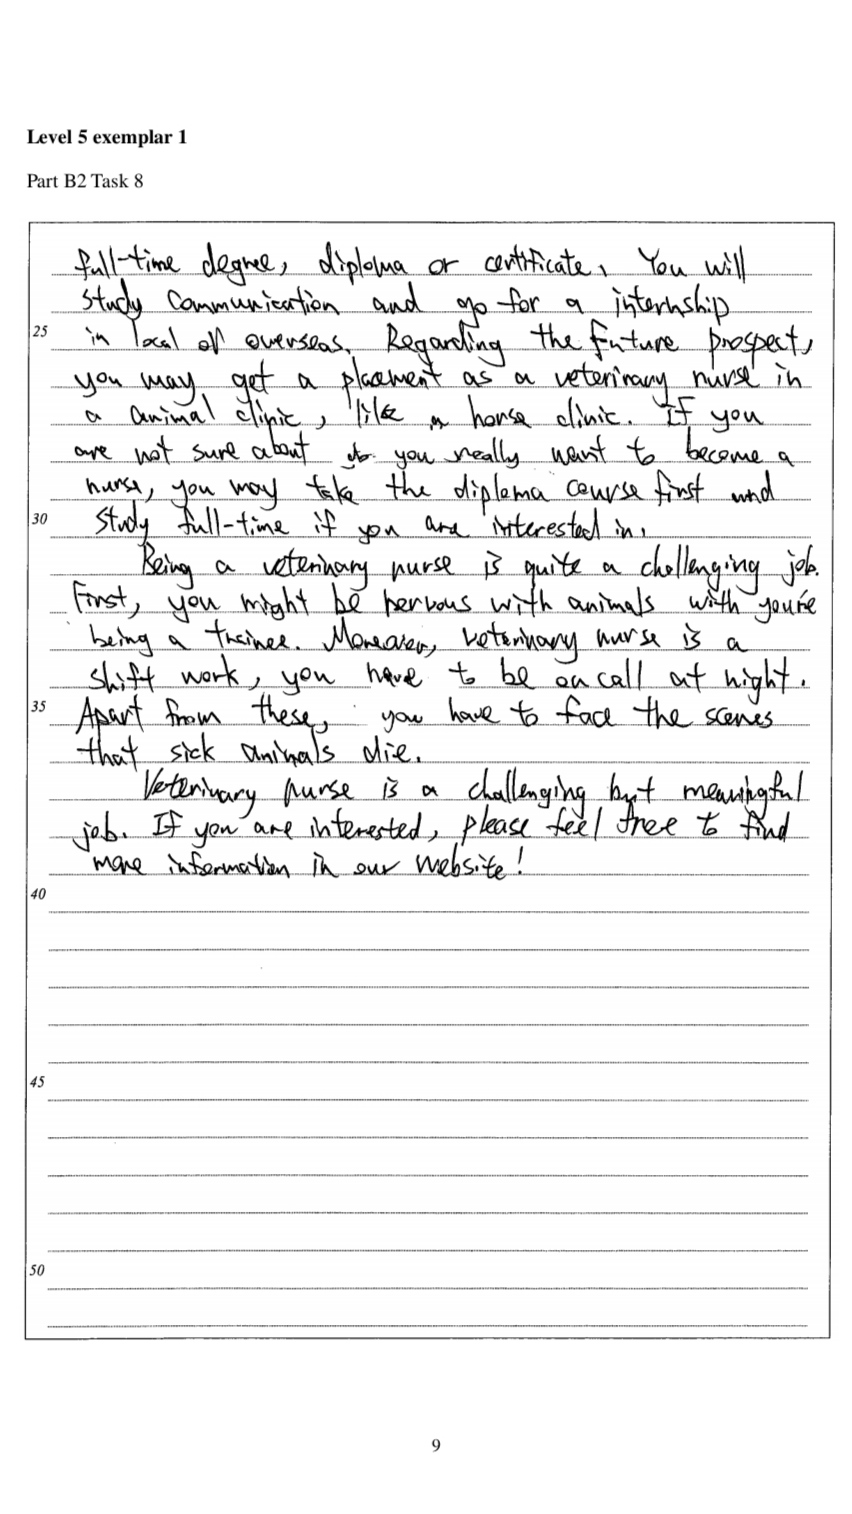 Level 5 exemplar 1
Part B2 Task 8
full-time degree, diploma or certificate, You will
study communication and go for a internship
25 in local or overseas. Regarding the future prospect,
you may get a placement as a veterinary nurse in
a animal clinic, like a horse clinic. If you
are not sure about do you really want to become a
nurse, you may take the diploma course first and
30 study full-time if you are interested in.
Being a veterinary nurse is quite a challenging job.
First, you might be nervous with animals with you're
being a trainee. Moreover, veterinary nurse is a
shift work, you have to be on call at night.
35 Apart from these, you have to face the scenes
that sick animals die.
Veterinary nurse is a challenging but meaningful
job. If you are interested, please feel free to find
more information in our website!
40
45
50
9